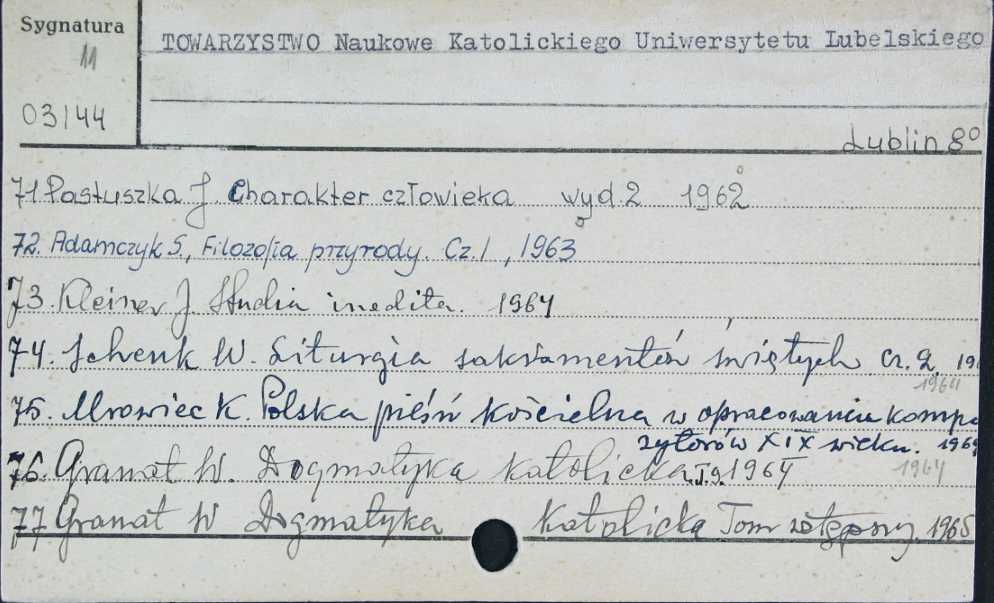 Sygnatura
11
TOWARZYSTWO Naukowe Katolickiego Uniwersytetu Lubelskiego
03144
Lublin 8°
71. Pastuszka J. Charakter człowieka wyd. 2 1962
72. Adamczyk S., Filozofia przyrody. Cz. I, 1963
73. Kleiner J. Studia inedita. 1964
74. Schenk W. Liturgia sakramentów świętych cz. 2. 19
1964
75. Mrowiec K. Polska pieśń kościelna w opracowaniu kompo
zytorów XIX wieku. 196
76. Granat W. Dogmatyka katolicka 1964
1964
77 Granat W Dogmatyka Katolicka Tom wstępny. 1965